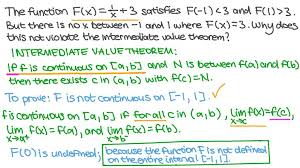 The function F(x) = 1/x + 3 satisfies F(-1) < 3 and F(1) > 3.
But there is no x between -1 and 1 where F(x) = 3. Why does
this not violate the intermediate value theorem?
INTERMEDIATE VALUE THEOREM:
If f is continuous on [a,b] and N is between f(a) and f(b)
then there exists c in (a,b) with f(c) = N.
To prove: F is not continuous on [-1, 1]. ✓
f is continuous on [a,b] if for all c in (a,b), lim x→c f(x) = f(c),
lim x→a⁺ f(x) = f(a), and lim x→b⁻ f(x) = f(b).
F(0) is undefined, because the function F is not defined
on the entire interval [-1, 1].